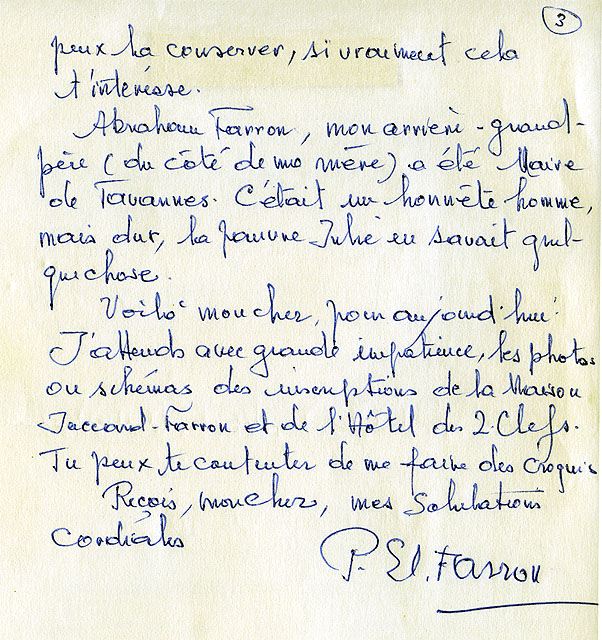 3
peux la conserver, si vraiment cela
t'intéresse.
Abraham Farron, mon arrière-grand-
père (du côté de ma mère) a été Maire
de Tavannes. C'était un honnête homme,
mais dur, la pauvre Julie en savait quel-
quechose.
Voilà moncher, pour aujourd'hui!
J'attends avec grande impatience, les photos
ou schémas des inscriptions de la Maison
Jaccard-Farron et de l'Hôtel des 2 Clefs.
Tu peux te contenter de me faire des croquis
Reçois, moncher, mes Salutations
Cordiales
P. El. Farron